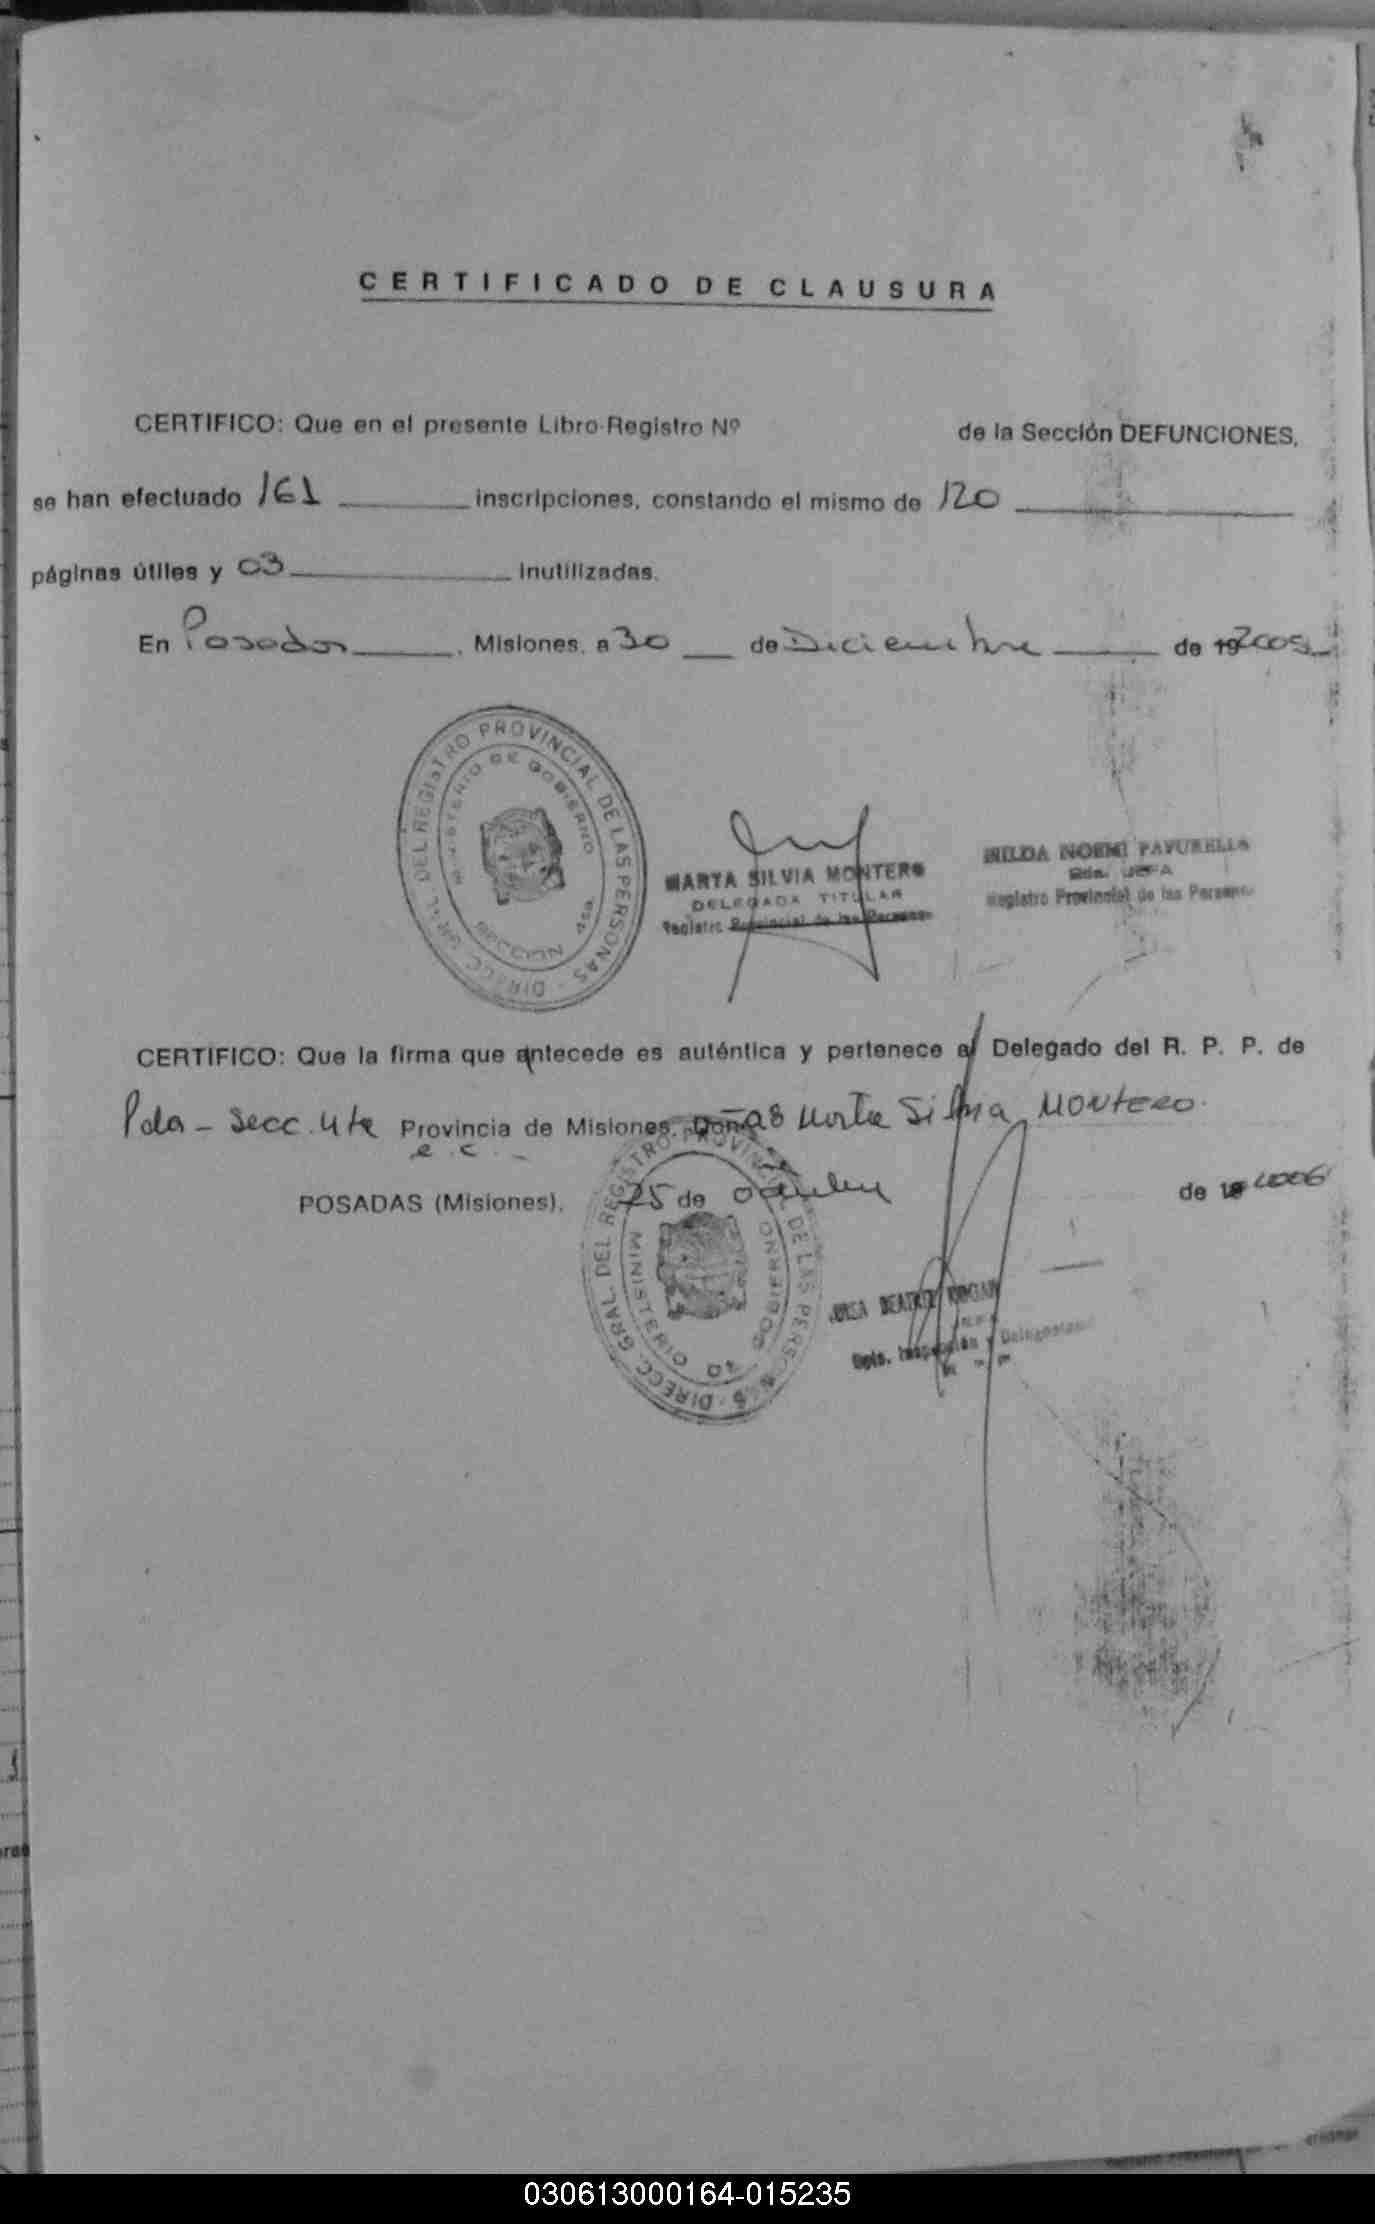 CERTIFICADO DE CLAUSURA
CERTIFICO: Que en el presente Libro-Registro Nº de la Sección DEFUNCIONES,
se han efectuado 161 inscripciones, constando el mismo de 120
páginas útiles y 03 inutilizadas.
En Posadas, Misiones, a 30 de Diciembre de 19 2005
DIRECC. GRAL. DEL REGISTRO PROVINCIAL DE LAS PERSONAS
MINISTERIO DE GOBIERNO
SECCION 4ta.
MARTA SILVIA MONTERO
DELEGADA TITULAR
Registro Provincial de las Personas
HILDA NOEMI
Registro Provincial de las Personas
CERTIFICO: Que la firma que antecede es auténtica y pertenece al Delegado del R. P. P. de
Pdas - Secc. 4ta Provincia de Misiones, Doña Marta Silvia MONTERO.
POSADAS (Misiones), 25 de octubre de 19 2006
DIRECC. GRAL. DEL REGISTRO PROVINCIAL DE LAS PERSONAS
MINISTERIO DE GOBIERNO
Dpto. Inspección y Delegaciones
030613000164-015235